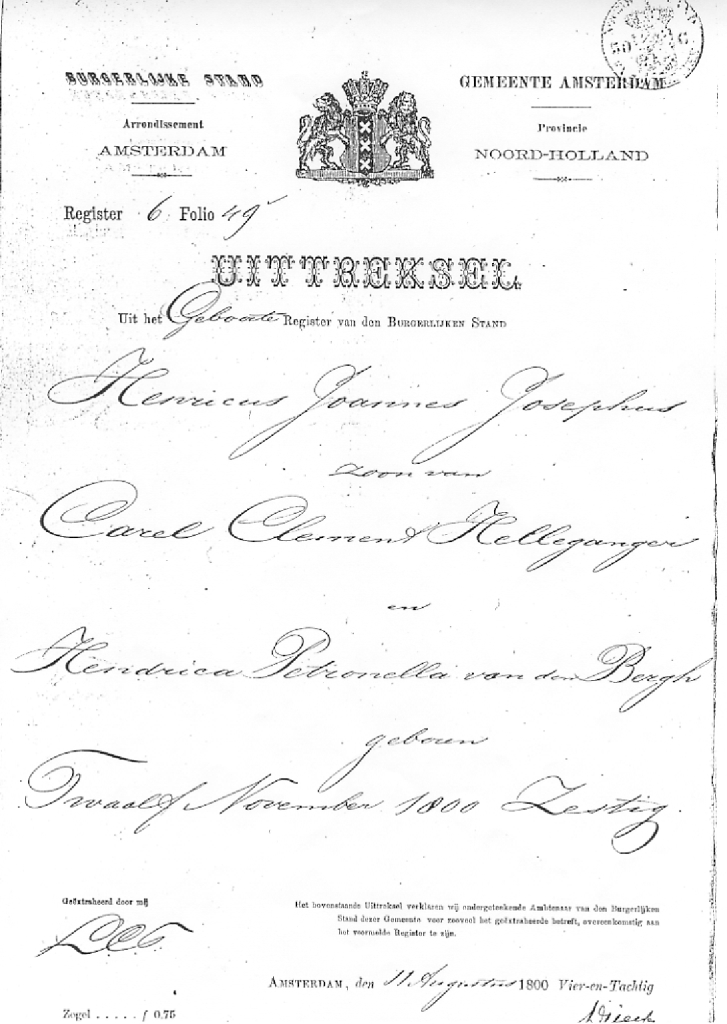 BURGERLIJKE STAND
GEMEENTE AMSTERDAM
Arrondissement
AMSTERDAM
Provincie
NOORD-HOLLAND
Register 6 Folio 49
UITTREKSEL
Uit het Geboorte Register van den BURGERLIJKEN STAND
Henricus Joannes Josephus
zoon van
Carel Clement Helleganger
en
Hendrica Petronella van den Bergh
geboren
Twaalf November 1800 Zestig.
Geëxtraheerd door mij
Het bovenstaande Uittreksel verklaren wij ondergeteekende Ambtenaar van den Burgerlijken
Stand dezer Gemeente voor zooveel het geëxtraheerde betreft, overeenkomstig aan
het voormelde Register te zijn.
AMSTERDAM, den 11 Augustus 1800 Vier-en-Tachtig
Zegel . . . . . ƒ 0.75